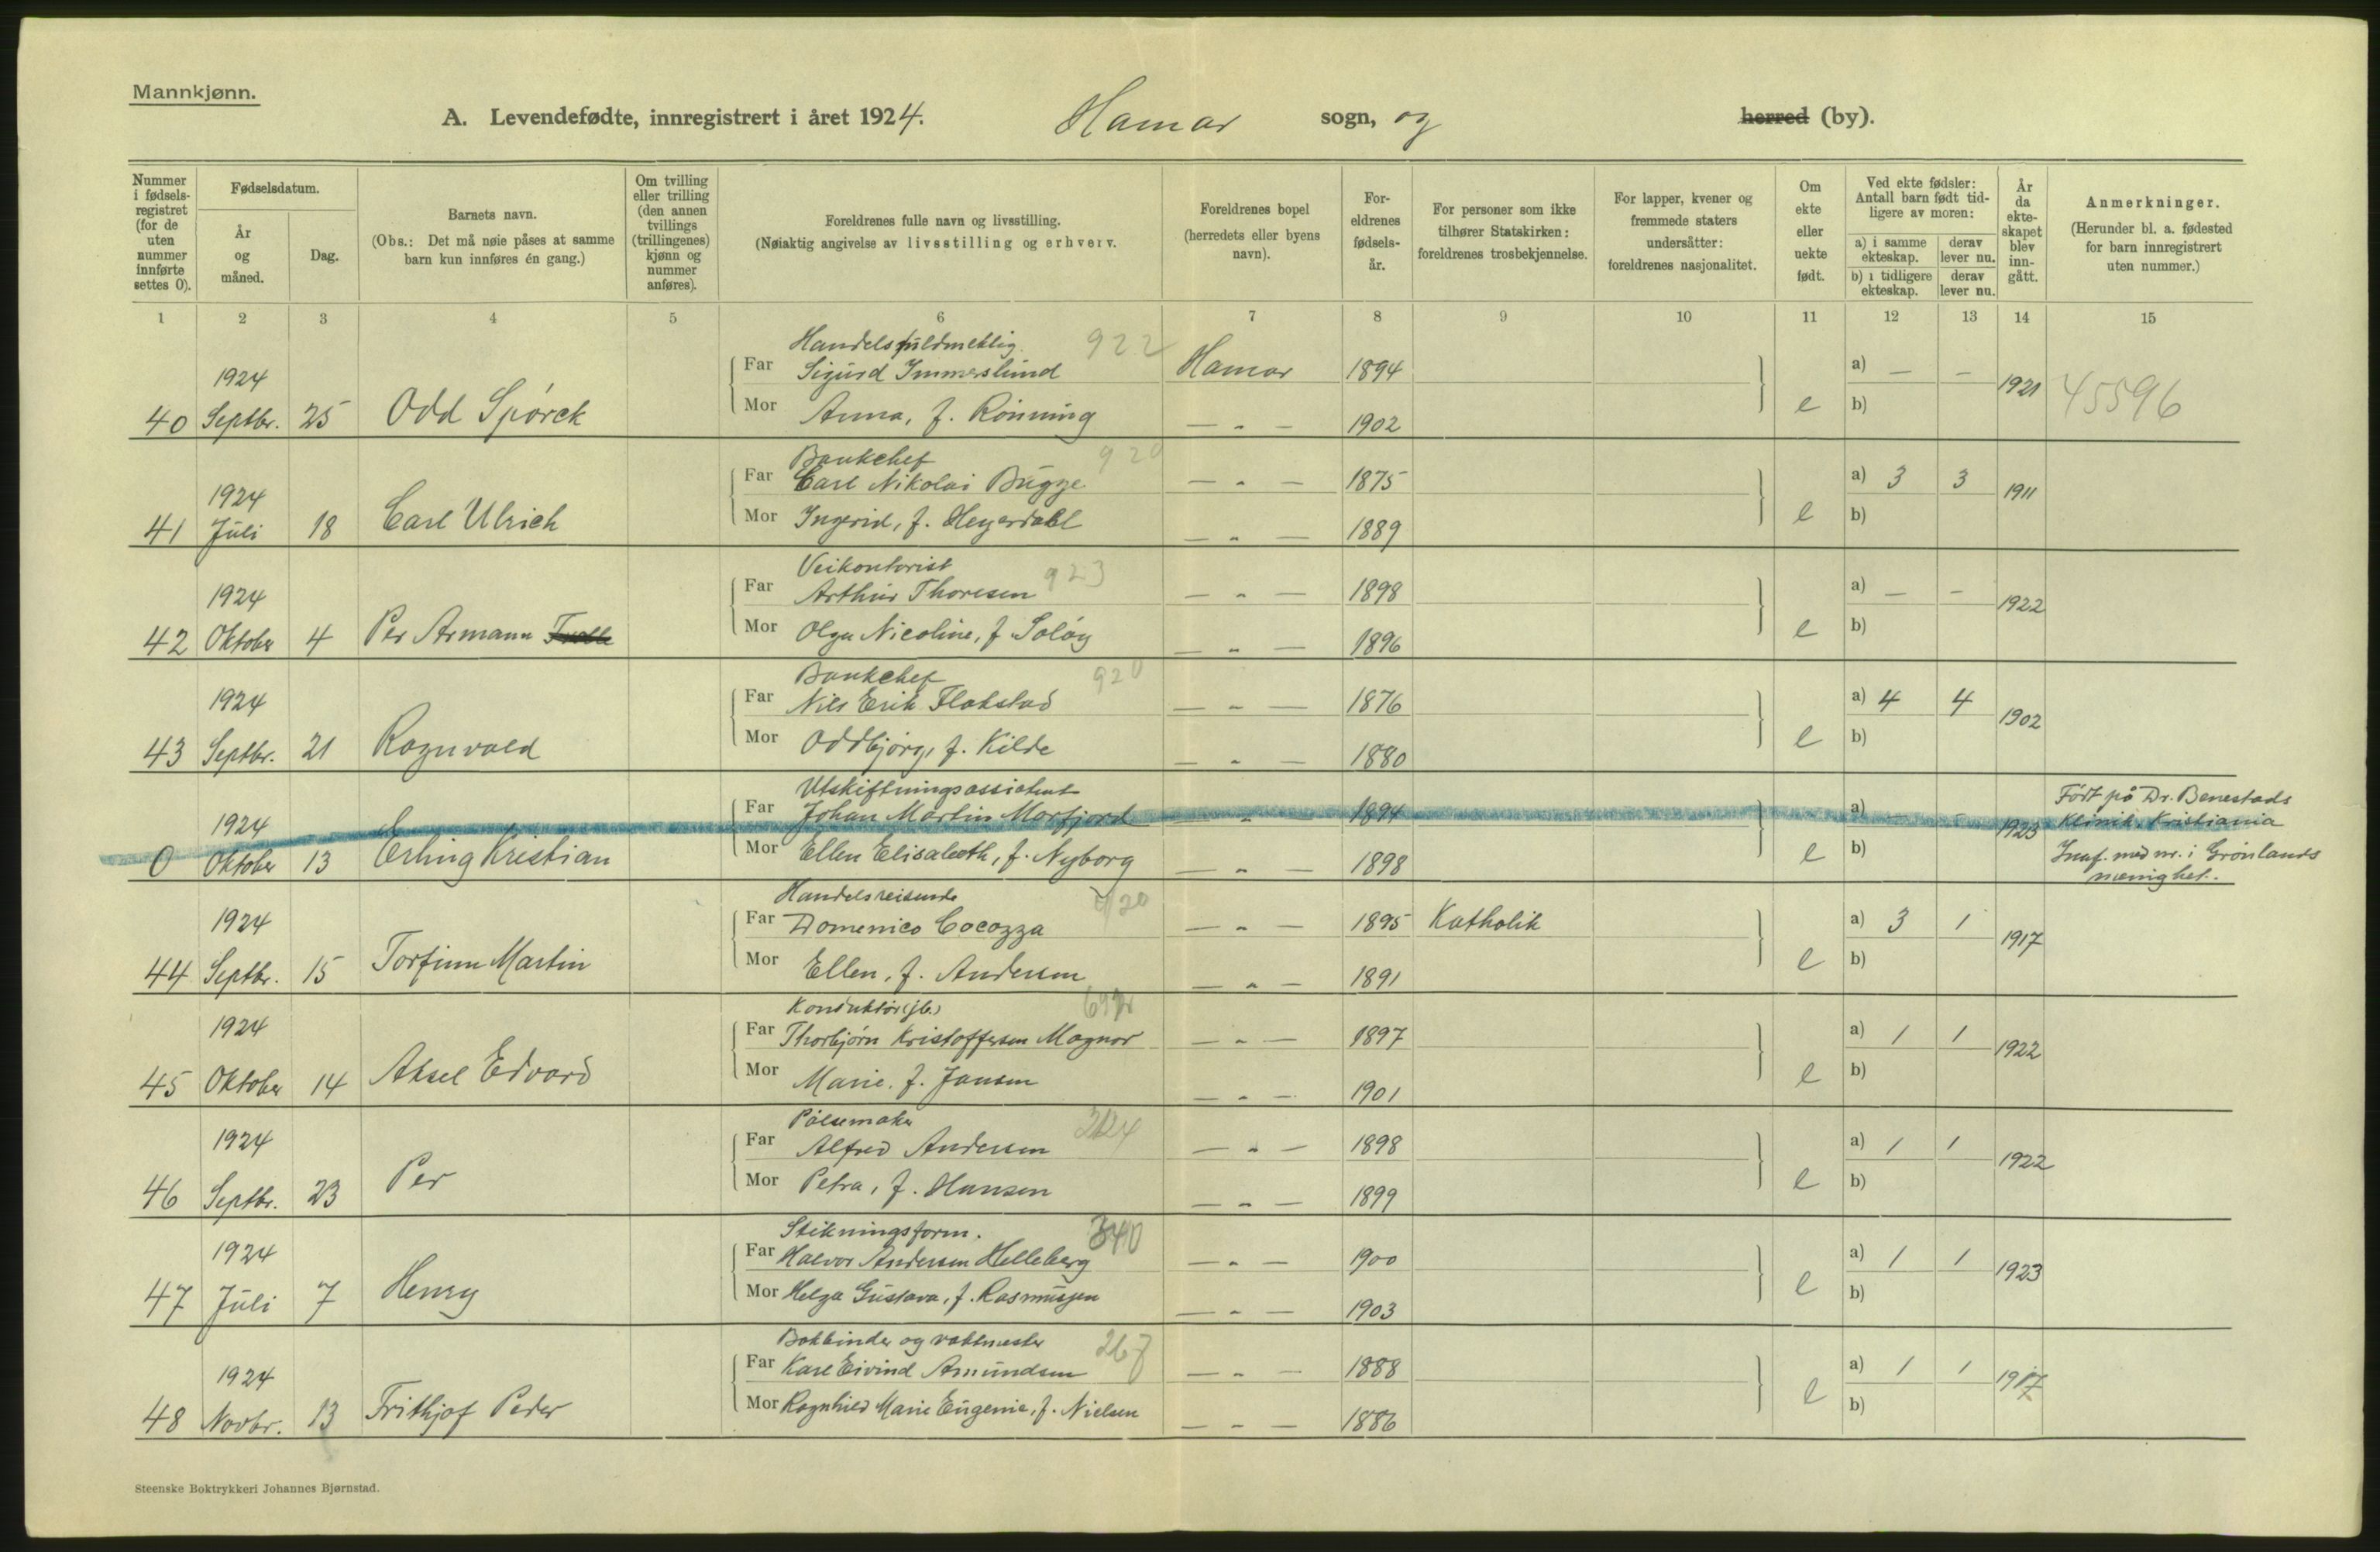 Mannkjønn.
A. Levendefødte, innregistrert i året 1924. Hamar sogn, og herred (by).
Nummer i fødsels-registret (for de uten nummer innførte settes 0).
Fødselsdatum.
År og måned.
Dag.
Barnets navn.
(Obs.: Det må nøie påses at samme barn kun innføres én gang.)
Om tvilling eller trilling (den annen tvillings (trillingenes) kjønn og nummer anføres).
Foreldrenes fulle navn og livsstilling.
(Nøiaktig angivelse av livsstilling og erhverv.
Foreldrenes bopel (herredets eller byens navn).
For-eldrenes fødsels-år.
For personer som ikke tilhører Statskirken: foreldrenes trosbekjennelse.
For lapper, kvener og fremmede staters undersåtter: foreldrenes nasjonalitet.
Om ekte eller uekte født.
Ved ekte fødsler: Antall barn født tid-ligere av moren:
a) i samme ekteskap. derav lever nu.
b) i tidligere ekteskap. derav lever nu.
År da ekte-skapet blev inn-gått.
Anmerkninger.
(Herunder bl. a. fødested for barn innregistrert uten nummer.)
1 2 3 4 5 6 7 8 9 10 11 12 13 14 15
Handelsfuldmektig 922
1924 Far Sigurd Immerslund Hamar 1894 a) — — 1921 45596
40 Septbr. 25 Odd Spörck Mor Anna, f. Rönning — " — 1902 e b)
Bankchef 920
1924 Far Carl Nikolai Bugge — " — 1875 a) 3 3 1911
41 Juli 18 Carl Ulrich Mor Ingerid, f. Heyerdahl — " — 1889 e b)
Veikontorist 923
1924 Far Arthur Thoresen — " — 1898 a) — — 1922
42 Oktober 4 Per Armann Mor Olga Nicoline, f. Solöy — " — 1896 e b)
Bankchef 920
1924 Far Nils Erik Flakstad — " — 1876 a) 4 4 1902
43 Septbr. 21 Ragnvald Mor Oddbjörg, f. Kilde — " — 1880 e b)
Utskiftningsassistent
1924 Far Johan Martin Morfjord — " — 1894 a) — — 1923 Född på Dr. Benestads Klinik, Kristiania
0 Oktober 13 Erling Kristian Mor Ellen Elisabeth, f. Nyborg — " — 1898 e b) Innf. med nr. i Grönlands menighet.
Handelsreisende 920
1924 Far Domenico Cocozza — " — 1895 Katholik a) 3 1 1917
44 Septbr. 15 Torfinn Martin Mor Ellen, f. Andersen — " — 1891 e b)
Konduktör (jb.)
1924 Far Thorbjørn Kristoffersen Magnor — " — 1897 a) 1 1 1922
45 Oktober 14 Aksel Edvard Mor Marie, f. Jansen — " — 1901 e b)
Pölsemaker 324
1924 Far Alfred Andersen — " — 1898 a) 1 1 1922
46 Septbr. 23 Per Mor Petra, f. Hansen — " — 1899 e b)
Stikningsform. 340
1924 Far Halvor Andersen Helleberg — " — 1900 a) 1 1 1923
47 Juli 7 Henry Mor Helga Gustava, f. Rasmussen — " — 1903 e b)
Bokbinder og vaktmester 267
1924 Far Karl Eivind Amundsen — " — 1888 a) 1 1 1917
48 Novbr. 13 Frithjof Peder Mor Ragnhild Marie Eugenie, f. Nielsen — " — 1886 e b)
Steenske Boktrykkeri Johannes Bjørnstad.